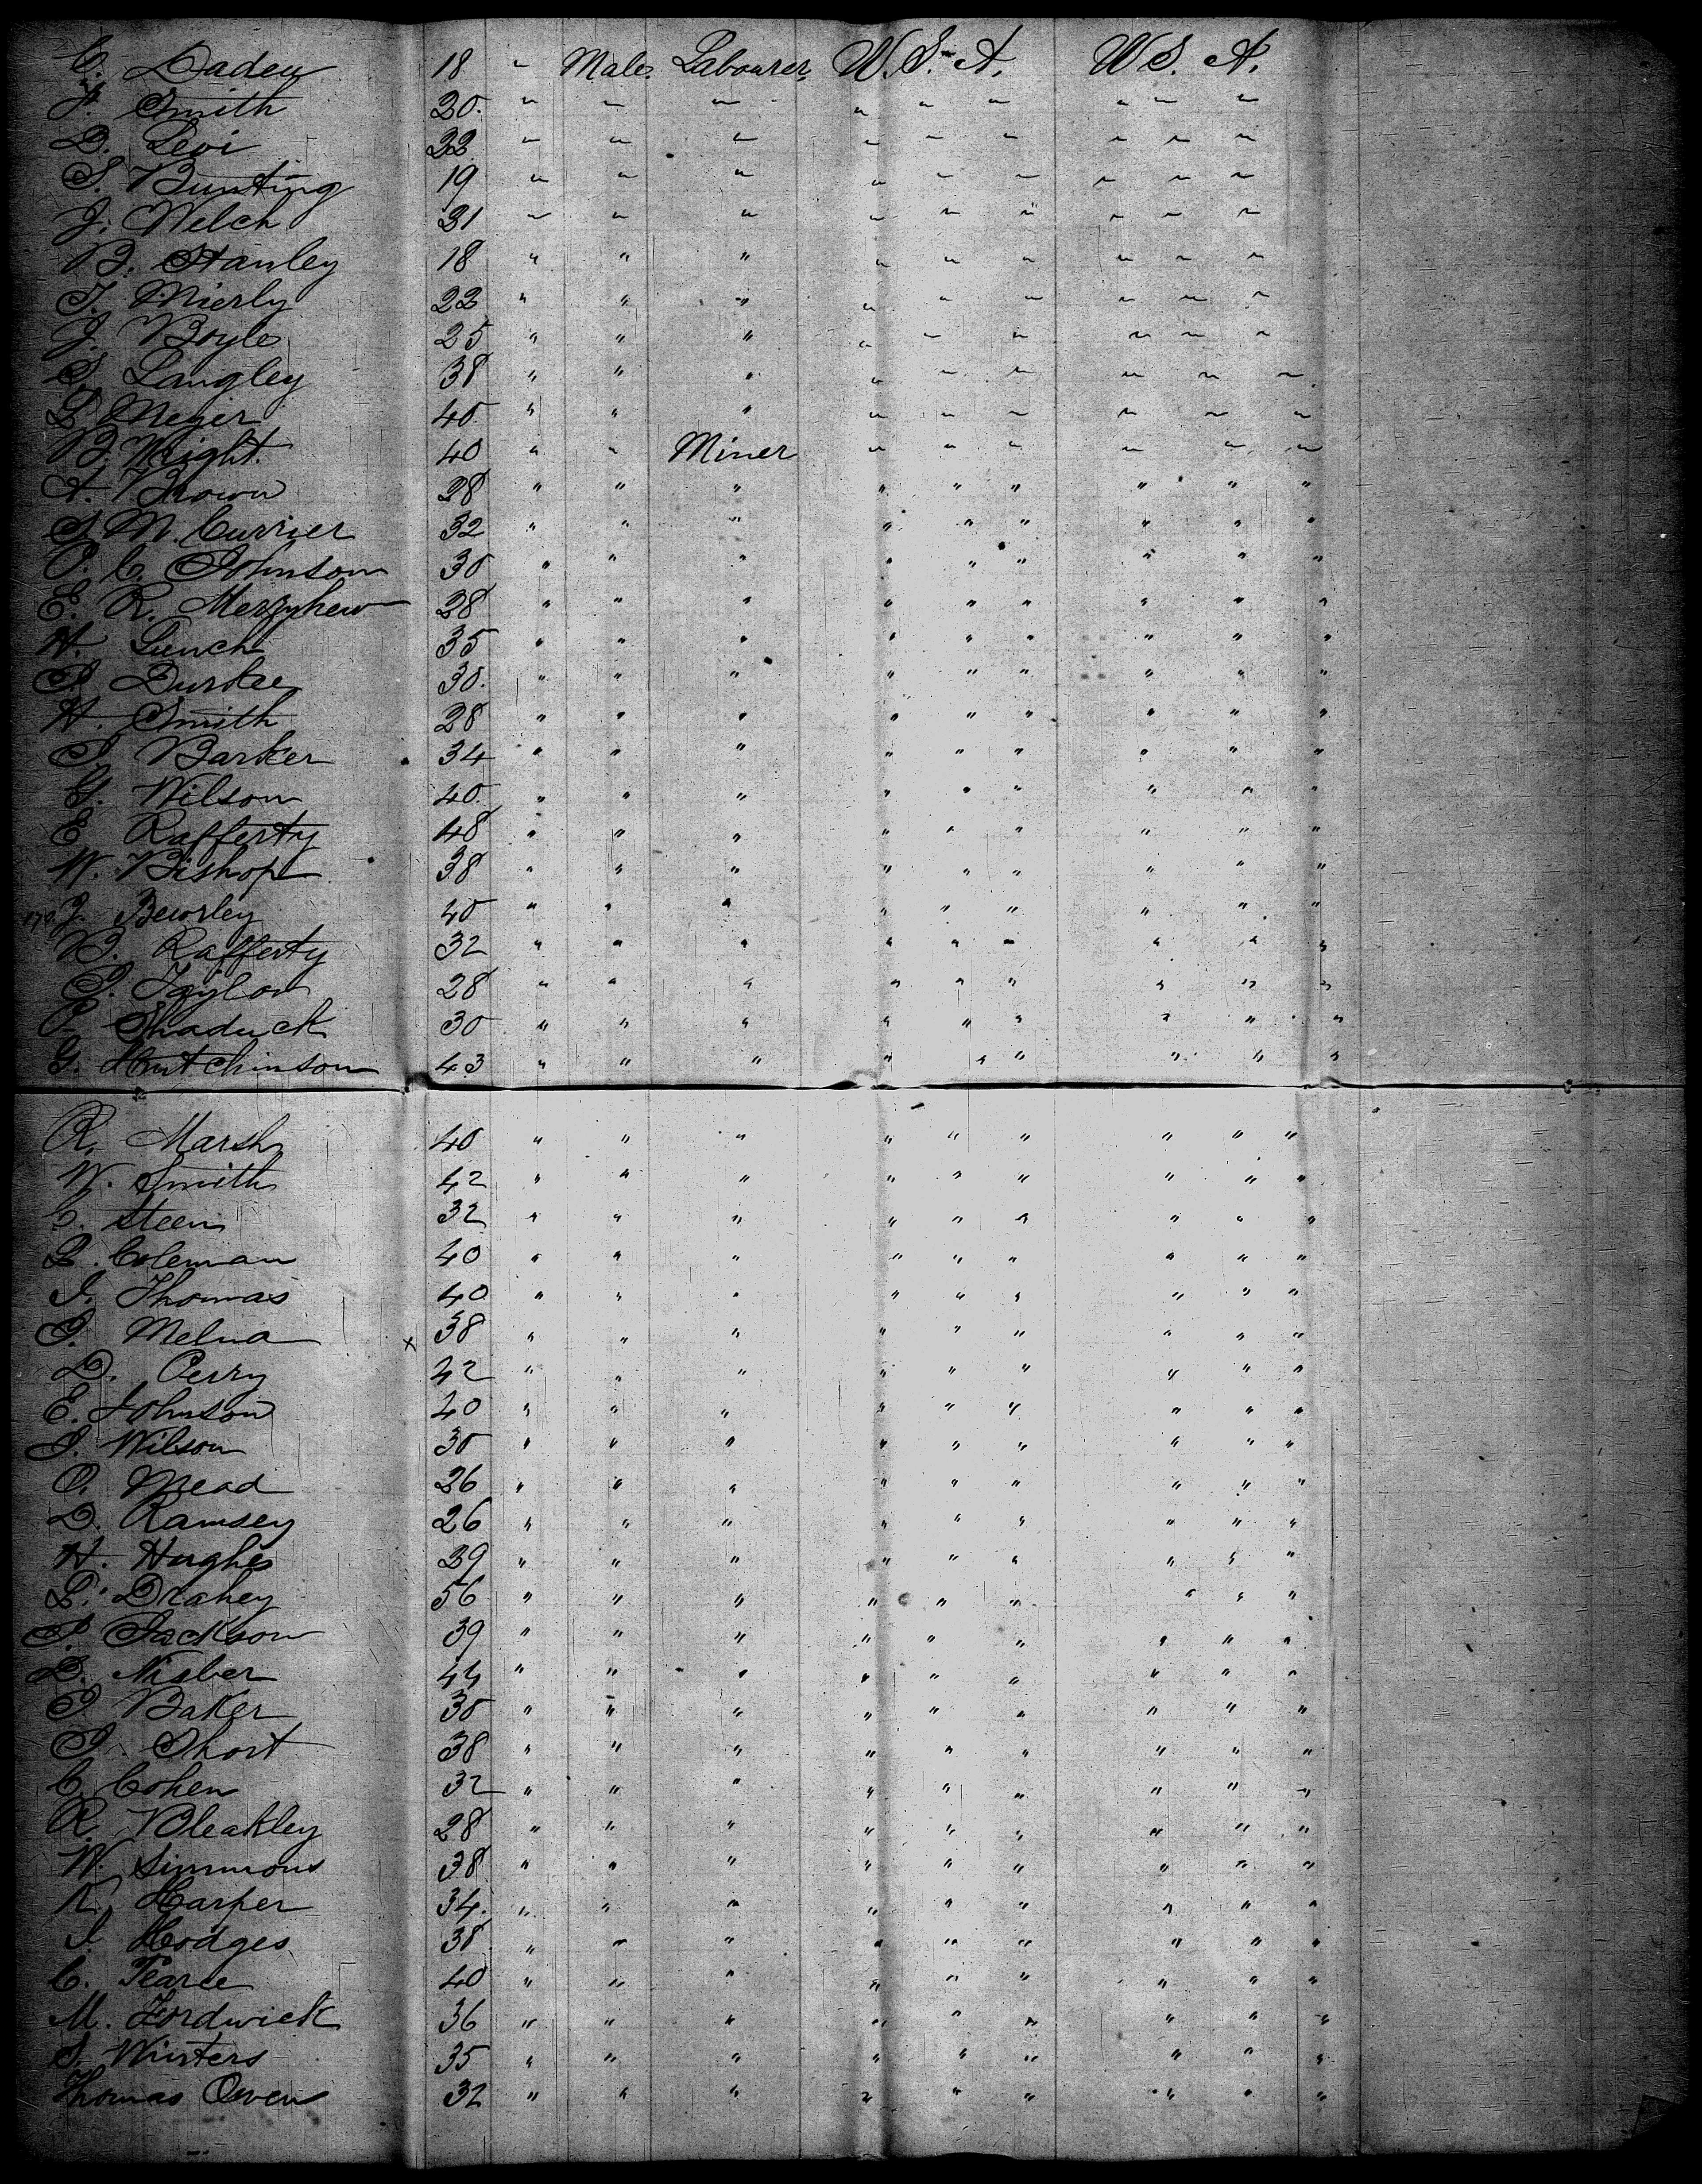 C. Daden 18 " Male Labourer U.S.A. U.S.A.
J. Smith 20 " " " " " " " " "
D. Levi 22 " " " " " " " " "
S. Bunting 19 " " " " " " " " "
J. Welch 21 " " " " " " " " "
B. Stanley 18 " " " " " " " " "
T. Mierly 22 " " " " " " " " "
J. Boyle 25 " " " " " " " " "
S. Langley 38 " " " " " " " " "
L. Meyer 40 " " " " " " " " "
B. Wright 40 " " Miner " " " " " "
A. Brown 28 " " " " " " " " "
S. M. Currier 32 " " " " " " " " "
P. C. Johnson 30 " " " " " " " " "
E. R. Merryhew 28 " " " " " " " " "
H. Lunch 35 " " " " " " " " "
S. Durkee 30 " " " " " " " " "
H. Smith 28 " " " " " " " " "
S. Barker 34 " " " " " " " " "
G. Wilson 40 " " " " " " " " "
E. Rafferty 48 " " " " " " " " "
W. Bishop 38 " " " " " " " " "
J. Bewsley 40 " " " " " " " " "
B. Rafferty 32 " " " " " " " " "
S. Taylor 28 " " " " " " " " "
P. Shaduck 30 " " " " " " " " "
G. Hutchinson 43 " " " " " " " " "
R. Marsh 40 " " " " " " " " "
W. Smith 42 " " " " " " " " "
C. Steen 32 " " " " " " " " "
L. Coleman 40 " " " " " " " " "
I. Thomas 40 " " " " " " " " "
I. Melna x 38 " " " " " " " " "
D. Perry 42 " " " " " " " " "
E. Johnson 40 " " " " " " " " "
I. Wilson 30 " " " " " " " " "
O. Mead 26 " " " " " " " " "
D. Ramsey 26 " " " " " " " " "
H. Hughes 39 " " " " " " " " "
L. Drahey 56 " " " " " " " " "
P. Jackson 39 " " " " " " " " "
D. Nisber 44 " " " " " " " " "
I. Baker 30 " " " " " " " " "
I. Short 38 " " " " " " " " "
C. Cohen 32 " " " " " " " " "
R. Bleakley 28 " " " " " " " " "
W. Simmons 38 " " " " " " " " "
Harper 34 " " " " " " " " "
I. Hodges 38 " " " " " " " " "
C. Pearce 40 " " " " " " " " "
M. Fordwick 36 " " " " " " " " "
S. Winters 35 " " " " " " " " "
Thomas Owen 32 " " " " " " " " "